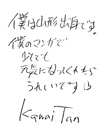 僕は山形出身です。
僕のマンガで
少しでも
元気になってくれたら
うれしいです
Kanai Tan